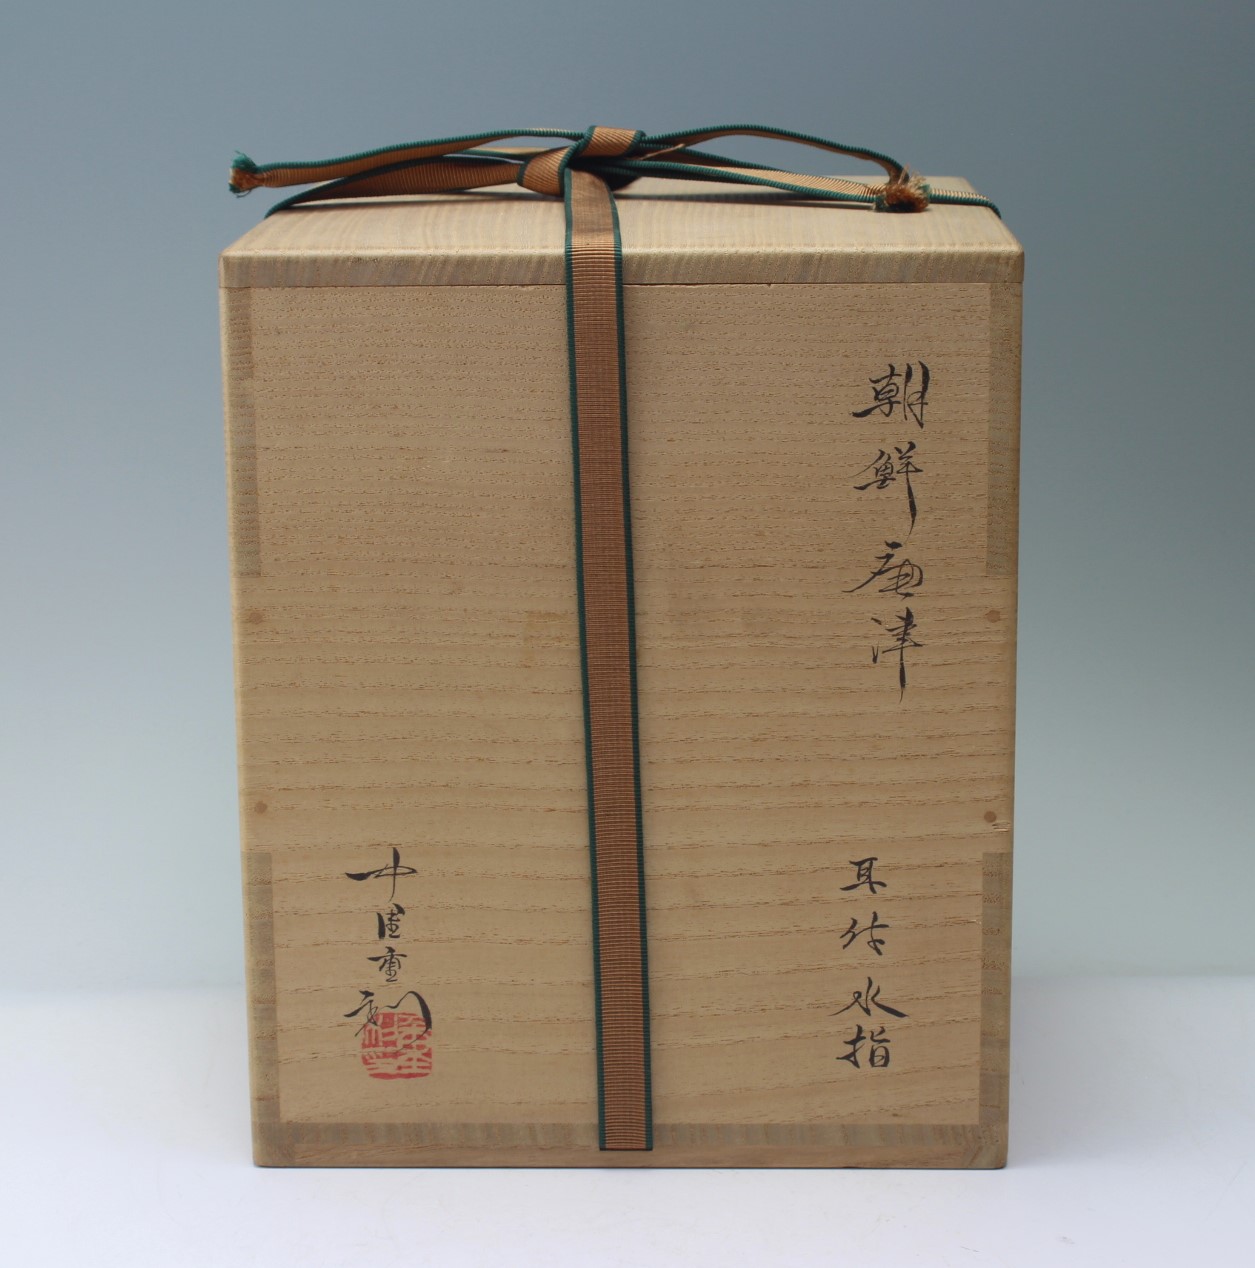 朝鮮唐津
耳付水指
中里重利